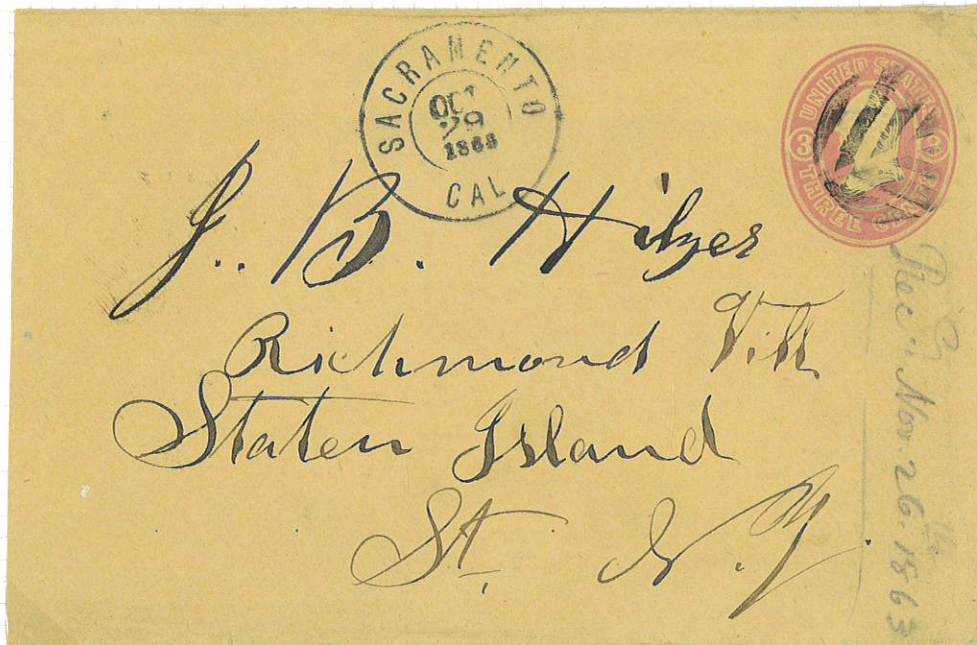 SACRAMENTO
OCT
29
1863
CAL
UNITED STATES
3 3
THREE CENTS
J. B. Hilyer
Richmond Vill
Staten Island
St. N. Y.
Rec'd Nov. 26th 1863